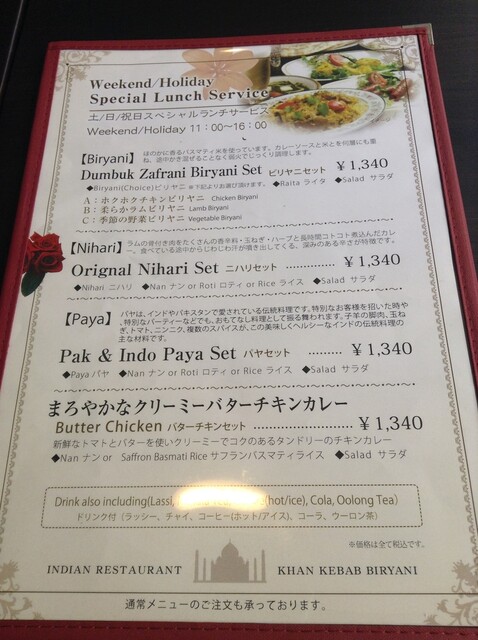 Weekend/Holiday
Special Lunch Service
土/日/祝日スペシャルランチサービス
Weekend/Holiday 11：00～16：00
【Biryani】 ほのかに香るバスマティ米を使っています。カレーソースと米とを何層にも重
ね、途中かき混ぜることなく弱火でじっくり調理します。
Dumbuk Zafrani Biryani Set ビリヤニセット ¥ 1,340
◆Biryani(Choice)ビリヤニ ※下記よりお選び頂けます。 ◆Raita ライタ ◆Salad サラダ
A：ホクホクチキンビリヤニ Chicken Biryani
B：柔らかラムビリヤニ Lamb Biryani
C：季節の野菜ビリヤニ Vegetable Biryani
【Nihari】 ラムの骨付き肉をたくさんの香辛料・玉ねぎ・ハーブと長時間コトコト煮込んだカレ
ー。食べている途中からじわじわ汗が噴き出してくる、深みのある辛さが特徴です。
Orignal Nihari Set ニハリセット ................ ¥ 1,340
◆Nihari ニハリ ◆Nan ナン or Roti ロティ or Rice ライス ◆Salad サラダ
【Paya】 パヤは、インドやパキスタンで愛されている伝統料理です。特別なお客様を招いた時や
、特別なパーティーなどでも、おもてなし料理として振る舞われます。子羊の脚肉、玉ね
ぎ、トマト、ニンニク、複数のスパイスが、この美味しくヘルシーなインドの伝統料理の
主な材料です。
Pak & Indo Paya Set パヤセット .......... ¥ 1,340
◆Paya パヤ ◆Nan ナン or Roti ロティ or Rice ライス ◆Salad サラダ
まろやかなクリーミーバターチキンカレー
Butter Chicken バターチキンセット ................ ¥ 1,340
新鮮なトマトとバターを使いクリーミーでコクのあるタンドリーのチキンカレー
◆Nan ナン or Saffron Basmati Rice サフランバスマティライス ◆Salad サラダ
Drink also including(Lassi, (hot/ice), Cola, Oolong Tea)
ドリンク付（ラッシー、チャイ、コーヒー(ホット/アイス)、コーラ、ウーロン茶）
※価格は全て税込です。
INDIAN RESTAURANT KHAN KEBAB BIRYANI
通常メニューのご注文も承っております。